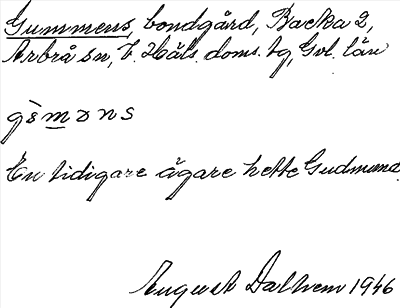 Gummens, bondgård, Backa 2,
Arbrå sn, V. Häls. doms. tg, Gvl. län
gɵ̀məns
En tidigare ägare hette Gudmund
August Dalhem 1946